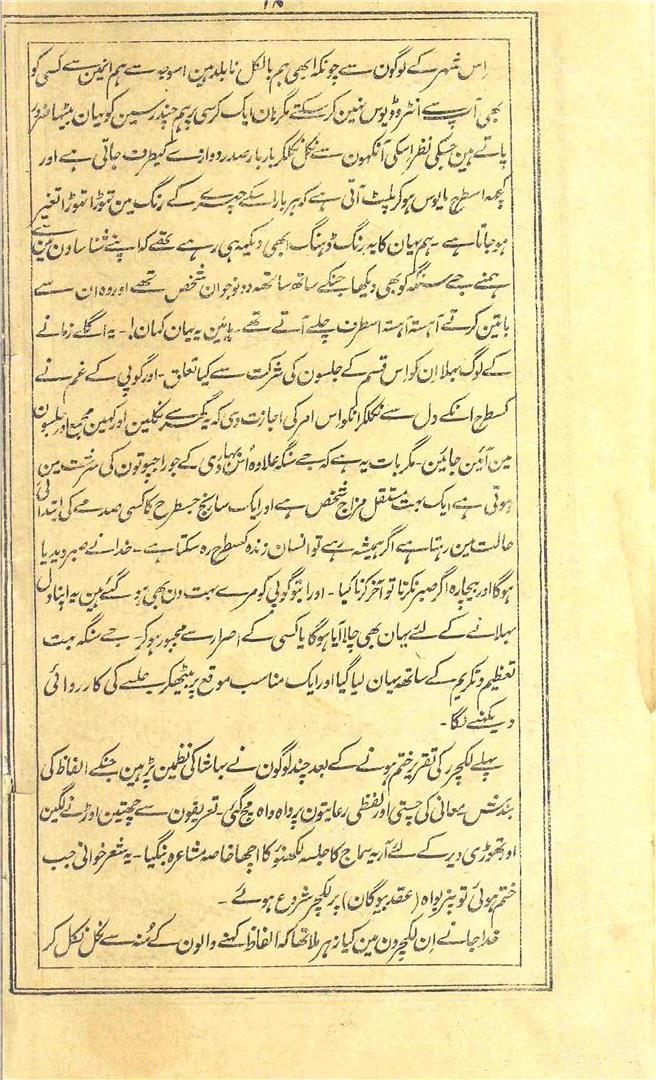 اس شہر کے لوگون سے چونکہ ابھی ہم بالکل نابلد ہین اسوجہ سے ہم انمین سے کسی کو
بھی آپ سے انٹروڈیوس نہین کرسکتے مگر ہان ایک کرسی پر ہم چندر سین کو یہان بیٹھا
پاتے ہین جسکی نظر اسکی آنکھون سے نکل نکلکر بار بار صدر دروازے کیطرف جاتی ہے اور
کچھ اسطرح مایوس ہو کر پلٹ آتی ہے کہ ہر بار اسکے چہرے کے رنگ مین تھوڑا تھوڑا تغیر
ہوجاتا ہے ۔ ہم یہان کا یہ رنگ ڈھنگ ابھی دیکھ ہی رہے تھے کہ اپنے شناساون مین سے
ہمنے جے سنگہ کو بھی دیکھا جنکے ساتھ ساتھ دو نوجوان شخص تھے اور وہ ان سے
باتین کرتے آہستہ آہستہ اسطرف چلے آتے تھے ۔ ہائین یہ یہان کہان! ۔ یہ اگلے زمانے
کے لوگ بھلا ان کو اس قسم کے جلسون کی شرکت سے کیا تعلق ۔ اور گوپی کے غم نے
کسطرح انکے دل سے نکلکر انکو اس امر کی اجازت دی کہ یہ گھر سے نکلین اور کہین مجمع اور جلسون
مین آئین جائین ۔ مگر بات یہ ہے کہ جے سنگہ علاوہ اُس بہادری کے جو راجپوتون کی سرشت مین
ہوتی ہے ایک بہت مستقل مزاج شخص ہے اور ایک سا رنج جسطرح کا کسی صدمے کی ابتدائی
حالت مین رہتا ہے اگر ہمیشہ رہے تو انسان زندہ کسطرح رہ سکتا ہے ۔ خدا نے صبر دیدیا
ہوگا اور بیچارہ اگر صبر نکرتا تو آخر کرتا کیا ۔ اور ابتو گوپی کو مرے بہت دن بھی ہو گئے ہین یہ اپنا دل
بہلانے کے لئے یہان بھی چلا آیا ہوگا یا کسی کے اصرار سے مجبور ہو کر ۔ جے سنگہ بہت
تعظیم و تکریم کے ساتھ یہان لیا گیا اور ایک مناسب موقع پر بیٹھکر جلسے کی کارروائی
دیکھنے لگا ۔
پہلے لکچرر کی تقریر ختم ہونے کے بعد چند لوگون نے بھاشا کی نظمین پڑہین جنکے الفاظ کی
بندش معانی کی چستی اور لفظی رعایتون پر واہ واہ مچ گئی ۔ تعریفون سے چھتین اوڑنے لگین
اور تھوڑی دیر کے لئے آریہ سماج کا جلسہ لکھنؤ کا اچھا خاصہ مشاعرہ بنگیا ۔ یہ شعر خوانی جب
ختم ہوئی تو پنر بواہ (عقد بیوگان) پر لکچر شروع ہوئے ۔
خدا جانے ان لکچرون مین کیا زہر ملا تھا کہ الفاظ کہنے والون کے مُنہ سے نکل نکل کر